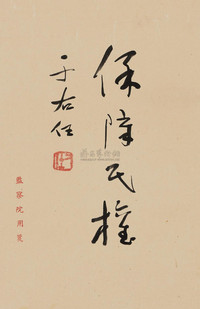 保障民權
于右任
監察院用箋